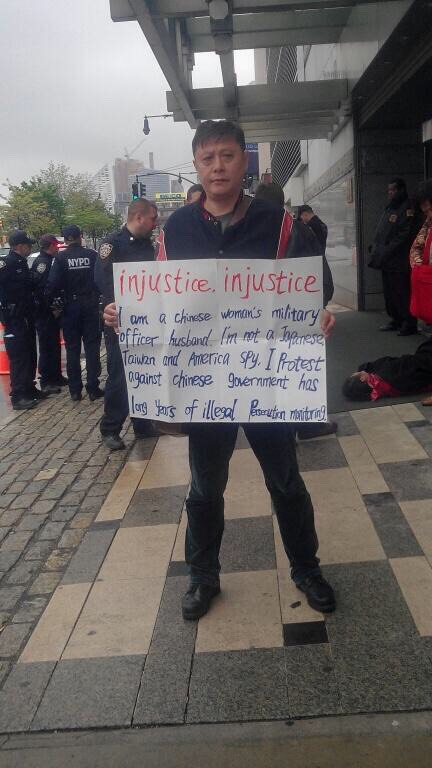 injustice. injustice
I am a chinese woman's military
officer husband. I'm not a Japanese
Taiwan and America spy. I Protest
against chinese government has
long years of illegal Persecution monitoring.
NYPD